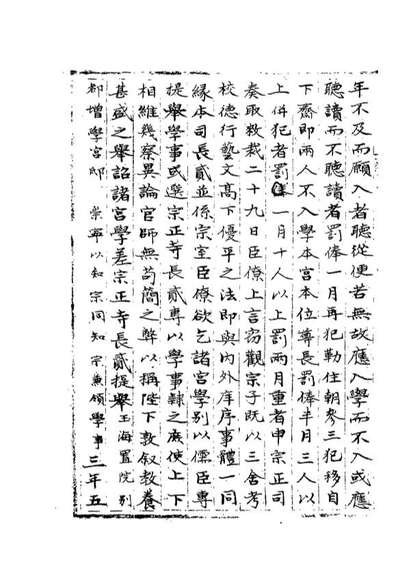 年不及而願入者聽從便若無故應入學而不入或應
聽讀而不聽讀者罰俸一月再犯勒住朝參三犯移自
下齋即兩人不入學本宮本位尊長罰俸半月三人以
上併犯者罰俸一月十人以上罰兩月重者申宗正司
奏取敕裁二十九日臣僚上言竊觀宗子既以三舍考
校德行藝文高下優平之法即與內外庠序事體一同
緣本司長貳並係宗室臣僚欲乞諸宮學別以儒臣專
提舉學事或選宗正寺長貳專以學事隸之庶使上下
相維幾察異論官師無苟簡之弊以稱陛下敦敘教養
甚盛之舉詔諸宮學差宗正寺長貳提舉玉海置院別
都增學宮邸 崇寧以知宗同知宗兼領學事三年五